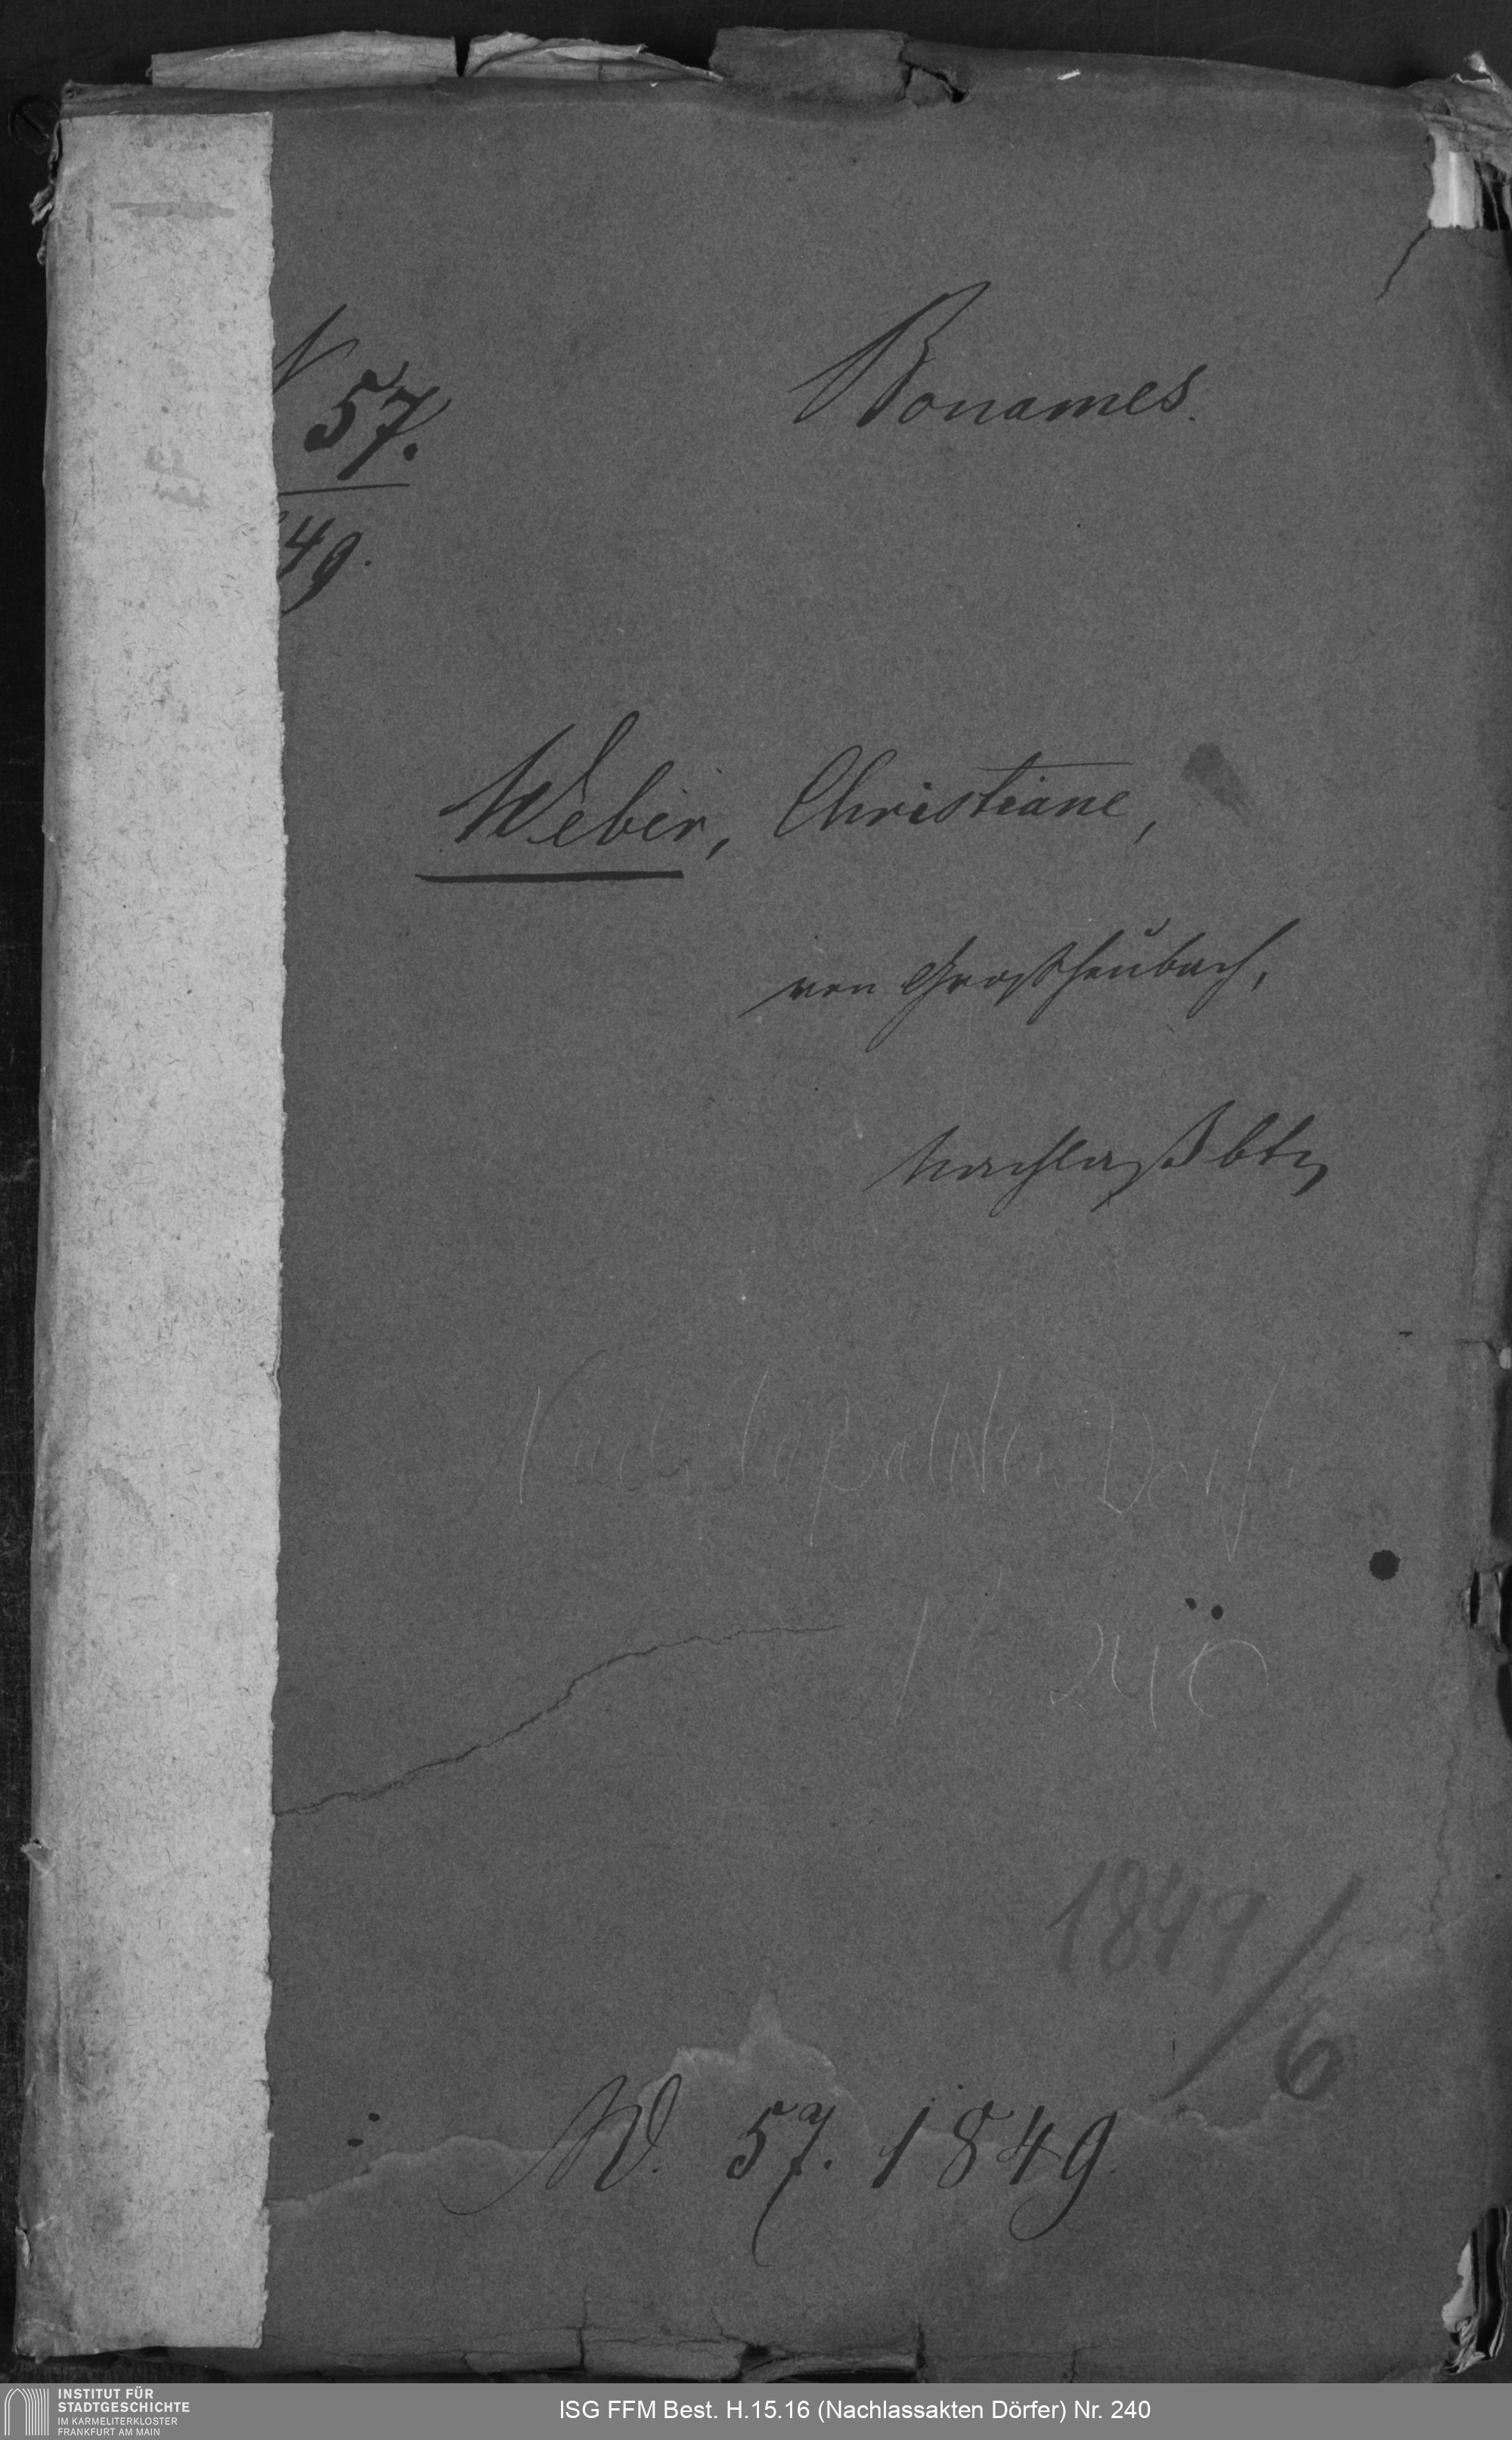 N 57.
49.
Bonames.
Weber, Christiane,
von Großheubach,
Nachlaß btr
Nachlaßakten Dörfer
Nr 240
1849/6
W. 57. 1849.
INSTITUT FÜR
STADTGESCHICHTE
IM KARMELITERKLOSTER
FRANKFURT AM MAIN
ISG FFM Best. H.15.16 (Nachlassakten Dörfer) Nr. 240